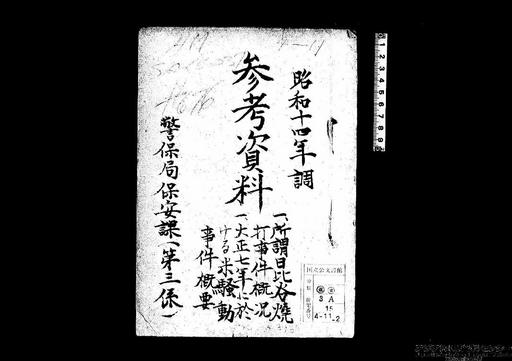 昭和十四年調
参考資料
一、所謂日比谷焼
打事件概況
一、大正七年に於
ける米騒動
事件概要
警保局保安課(第三係)
国立公文書館
3A
15
4-11
2